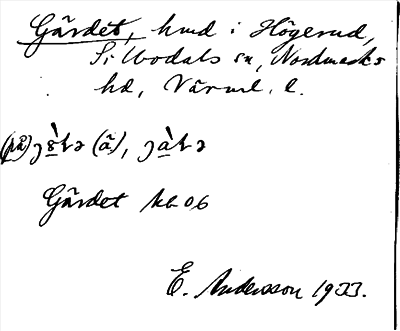 Gärdet, hmd i Högerud,
Silbodals sn, Nordmarks
hd, Värml. l.
(på)
Gärdet kb 06
E. Andersson 1933.